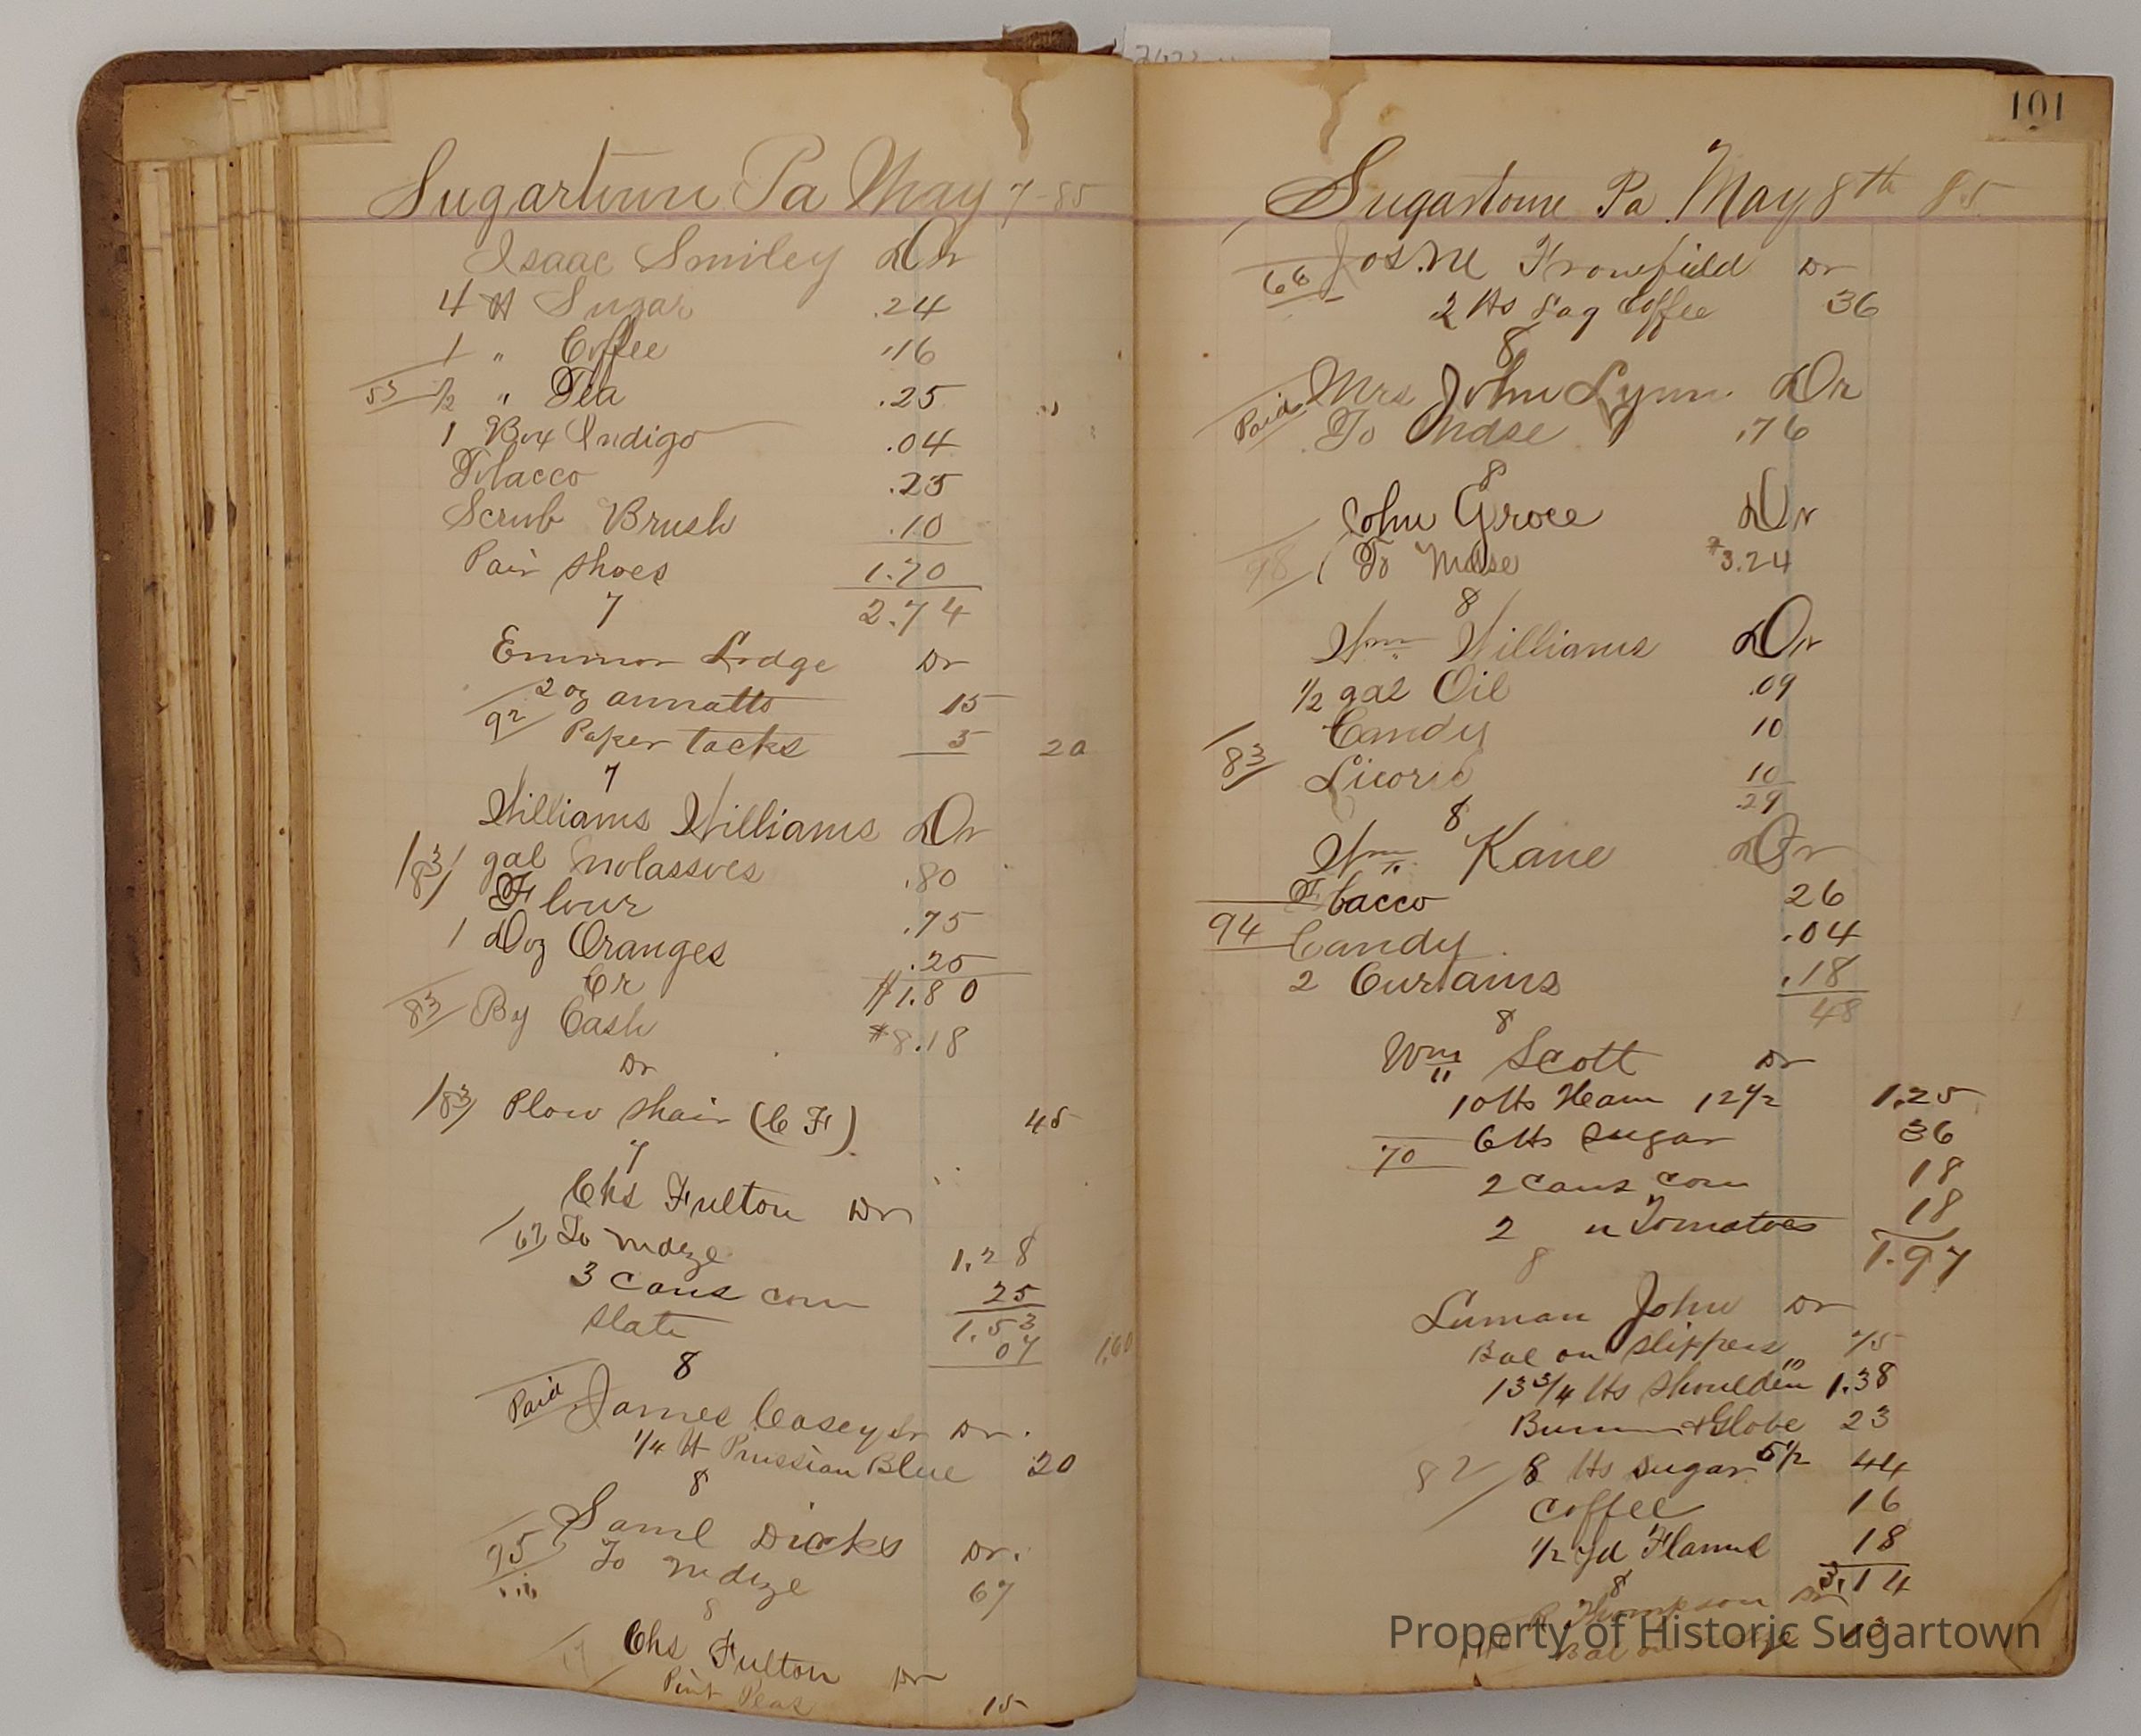 Sugartown Pa May 7-85
Isaac Smiley Dr
4 lb Sugar .24
1 " Coffee .16
53 1/2 " Tea .25
1 Box Indigo .04
Tobacco .25
Scrub Brush .10
Pair shoes 1.70
7 2.74
Emmor Lodge Dr
2 oz annatto 15
92 Paper tacks 5 20
7
Williams Williams Dr
83 1 gal Molassoes .80
Flour .75
1 Doz Oranges .25
Cr $1.80
83 By Cash $8.18
Dr
83 Plow shair (C F) 45
7
Chs Fulton Dr
67 To mdze 1.28
3 cans corn 25
1.53
Slate 07 1.60
8
Paid James Casey Sr Dr.
1/4 lb Prussian Blue 20
8
Saml Dicks Dr.
95 To mdze 67
8
Chs Fulton Dr
Pint Peas 15
101
Sugartown Pa May 8th 85
66 Jos. M Fronefield Dr
2 lbs Lag Coffee 36
8
Mrs John Lynn Dr
Paid To Mdse .76
8
John Groce Dr
98 To Mdse $3.24
8
Wm Williams Dr
1/2 gal Oil .09
Candy 10
83 Licoric 10
29
8
Wm Kane Dr
Tobacco 26
94 Candy .04
2 Curtains .18
48
8
Wm Scott Dr
10 lbs Ham 12 1/2 1.25
70 6 lbs sugar 36
2 cans corn 18
2 " Tomatoes 18
8 1.97
Luman John Dr
Bal on slippers 75
13 3/4 lbs shoulder 10 1.38
Burner & Globe 23
82 8 lbs sugar 5 1/2 44
Coffee 16
1/2 yd Flannel 18
8 3.14
R Thompson Dr
Bal on
Property of Historic Sugartown